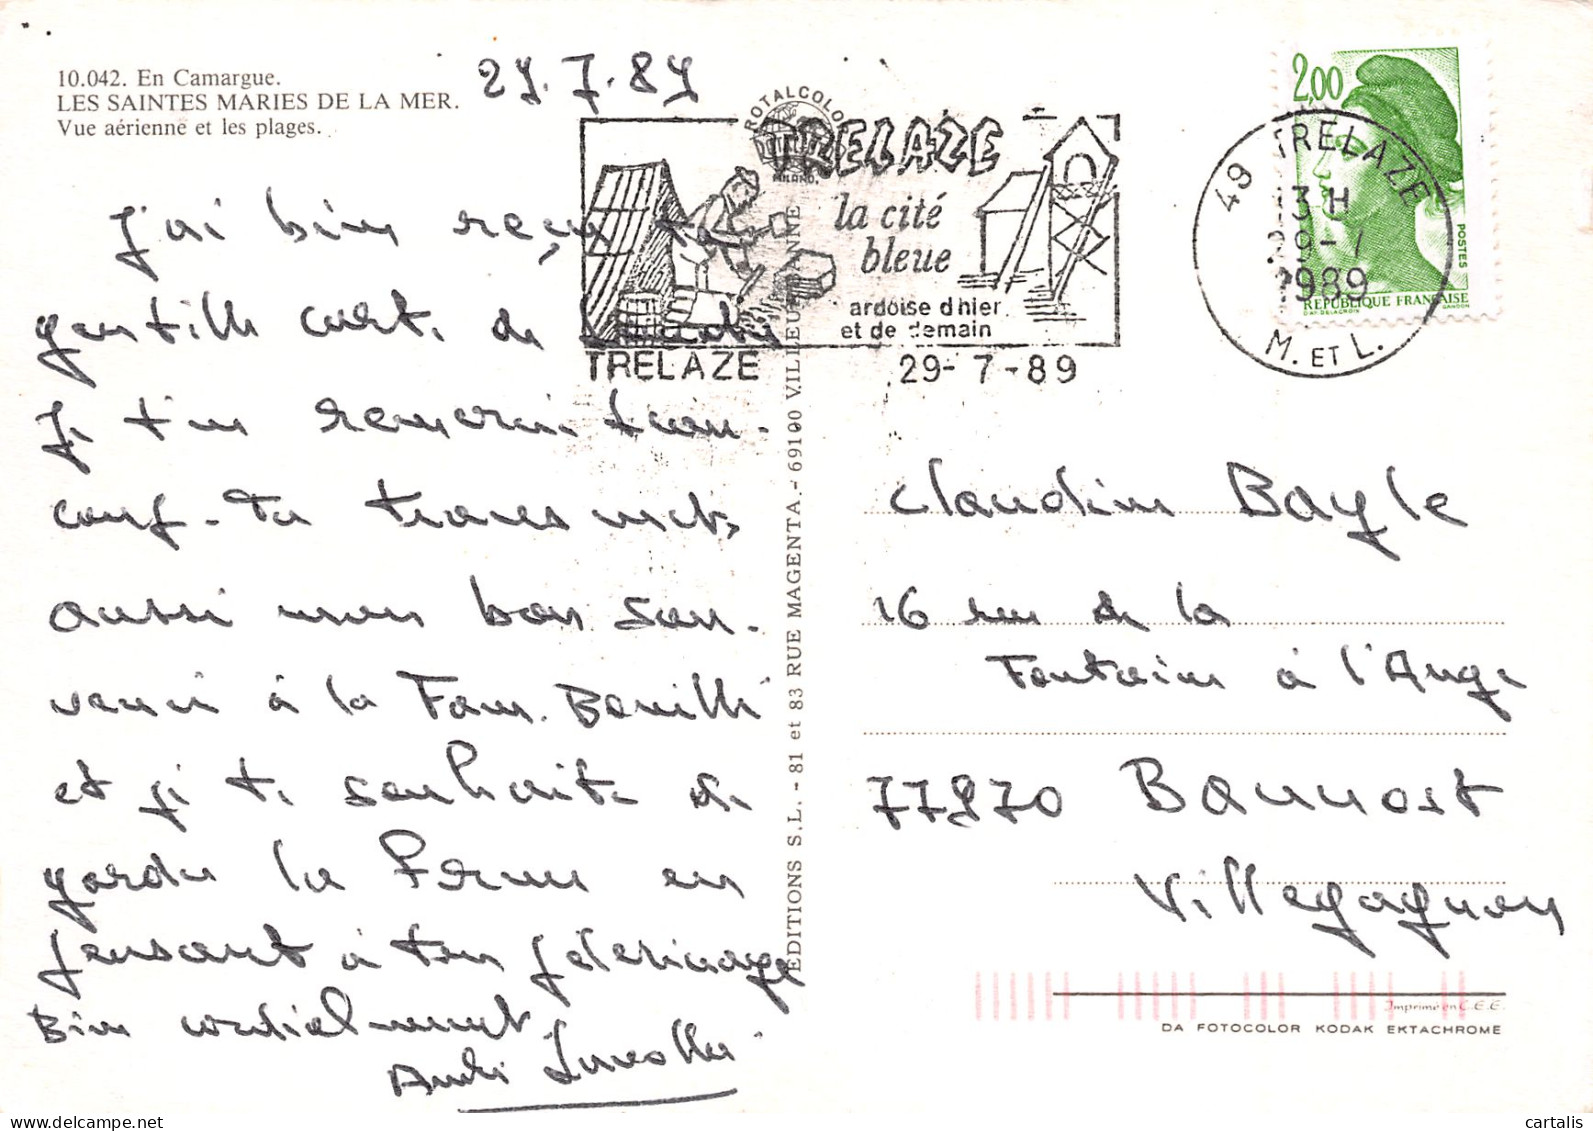 10.042. En Camargue.
LES SAINTES MARIES DE LA MER.
Vue aérienne et les plages.
29.7.89
J'ai bien reçu ta
gentille carte de
Je t'en remercie
Tu transmets
aussi mon bon sou-
venir à la Fam.
et je te souhaite de
garder la Forme en
pensant à ton pélerinage
Bien cordialement
ROTALCOLOR
MILANO.
TRELAZE
la cité
bleue
ardoise d'hier
et de demain
TRELAZE
29-7-89
49 TRELAZE
13 H
29-7
1989
M. ET L.
2,00
POSTES
REPUBLIQUE FRANÇAISE
D'AP. DELACROIX
GANDON
EDITIONS S.L. - 81 et 83 RUE MAGENTA. - 69100 VILLEURBANNE
Claudine Bayle
16 rue de la
Fontaine à l'Ange
77970 Bannost
Villegagnon
Imprimé en C.E.E.
DA FOTOCOLOR KODAK EKTACHROME
cartalis